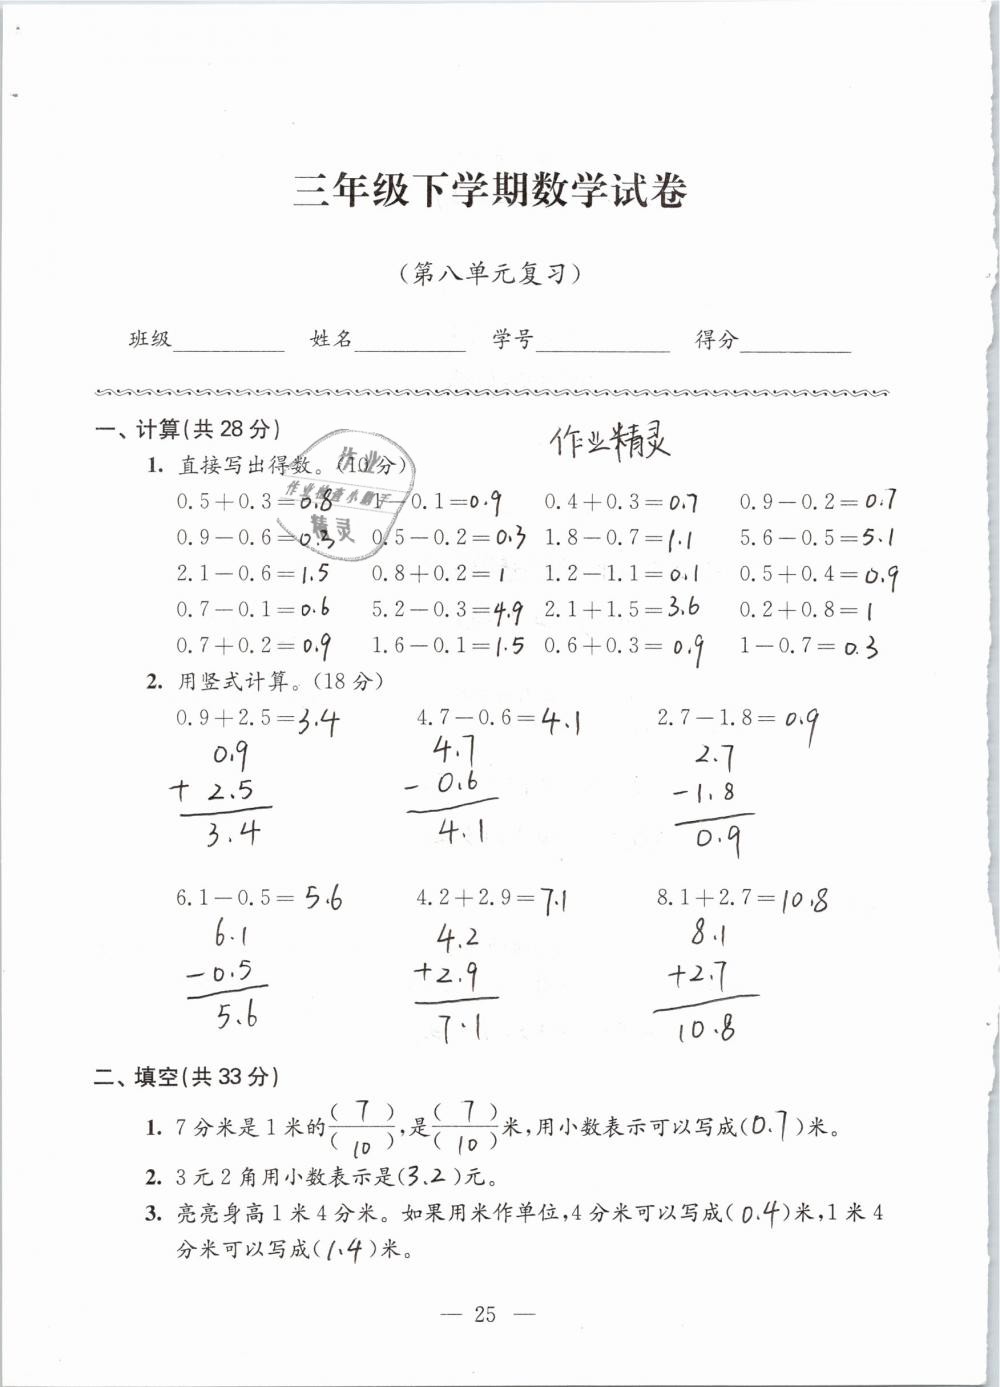 三年级下学期数学试卷
(第八单元复习)
班级 姓名 学号 得分
一、计算(共28分)
作业精灵
1. 直接写出得数。(10分)
作业
作业检查小帮手
精灵
0.5+0.3=0.8 1-0.1=0.9 0.4+0.3=0.7 0.9-0.2=0.7
0.9-0.6=0.3 0.5-0.2=0.3 1.8-0.7=1.1 5.6-0.5=5.1
2.1-0.6=1.5 0.8+0.2=1 1.2-1.1=0.1 0.5+0.4=0.9
0.7-0.1=0.6 5.2-0.3=4.9 2.1+1.5=3.6 0.2+0.8=1
0.7+0.2=0.9 1.6-0.1=1.5 0.6+0.3=0.9 1-0.7=0.3
2. 用竖式计算。(18分)
0.9+2.5=3.4 4.7-0.6=4.1 2.7-1.8=0.9
0.9 4.7 2.7
+ 2.5 - 0.6 -1.8
3.4 4.1 0.9
6.1-0.5=5.6 4.2+2.9=7.1 8.1+2.7=10.8
6.1 4.2 8.1
-0.5 +2.9 +2.7
5.6 7.1 10.8
二、填空(共33分)
1. 7分米是1米的(7)/(10),是(7)/(10)米,用小数表示可以写成(0.7)米。
2. 3元2角用小数表示是(3.2)元。
3. 亮亮身高1米4分米。如果用米作单位,4分米可以写成(0.4)米,1米4
分米可以写成(1.4)米。
— 25 —